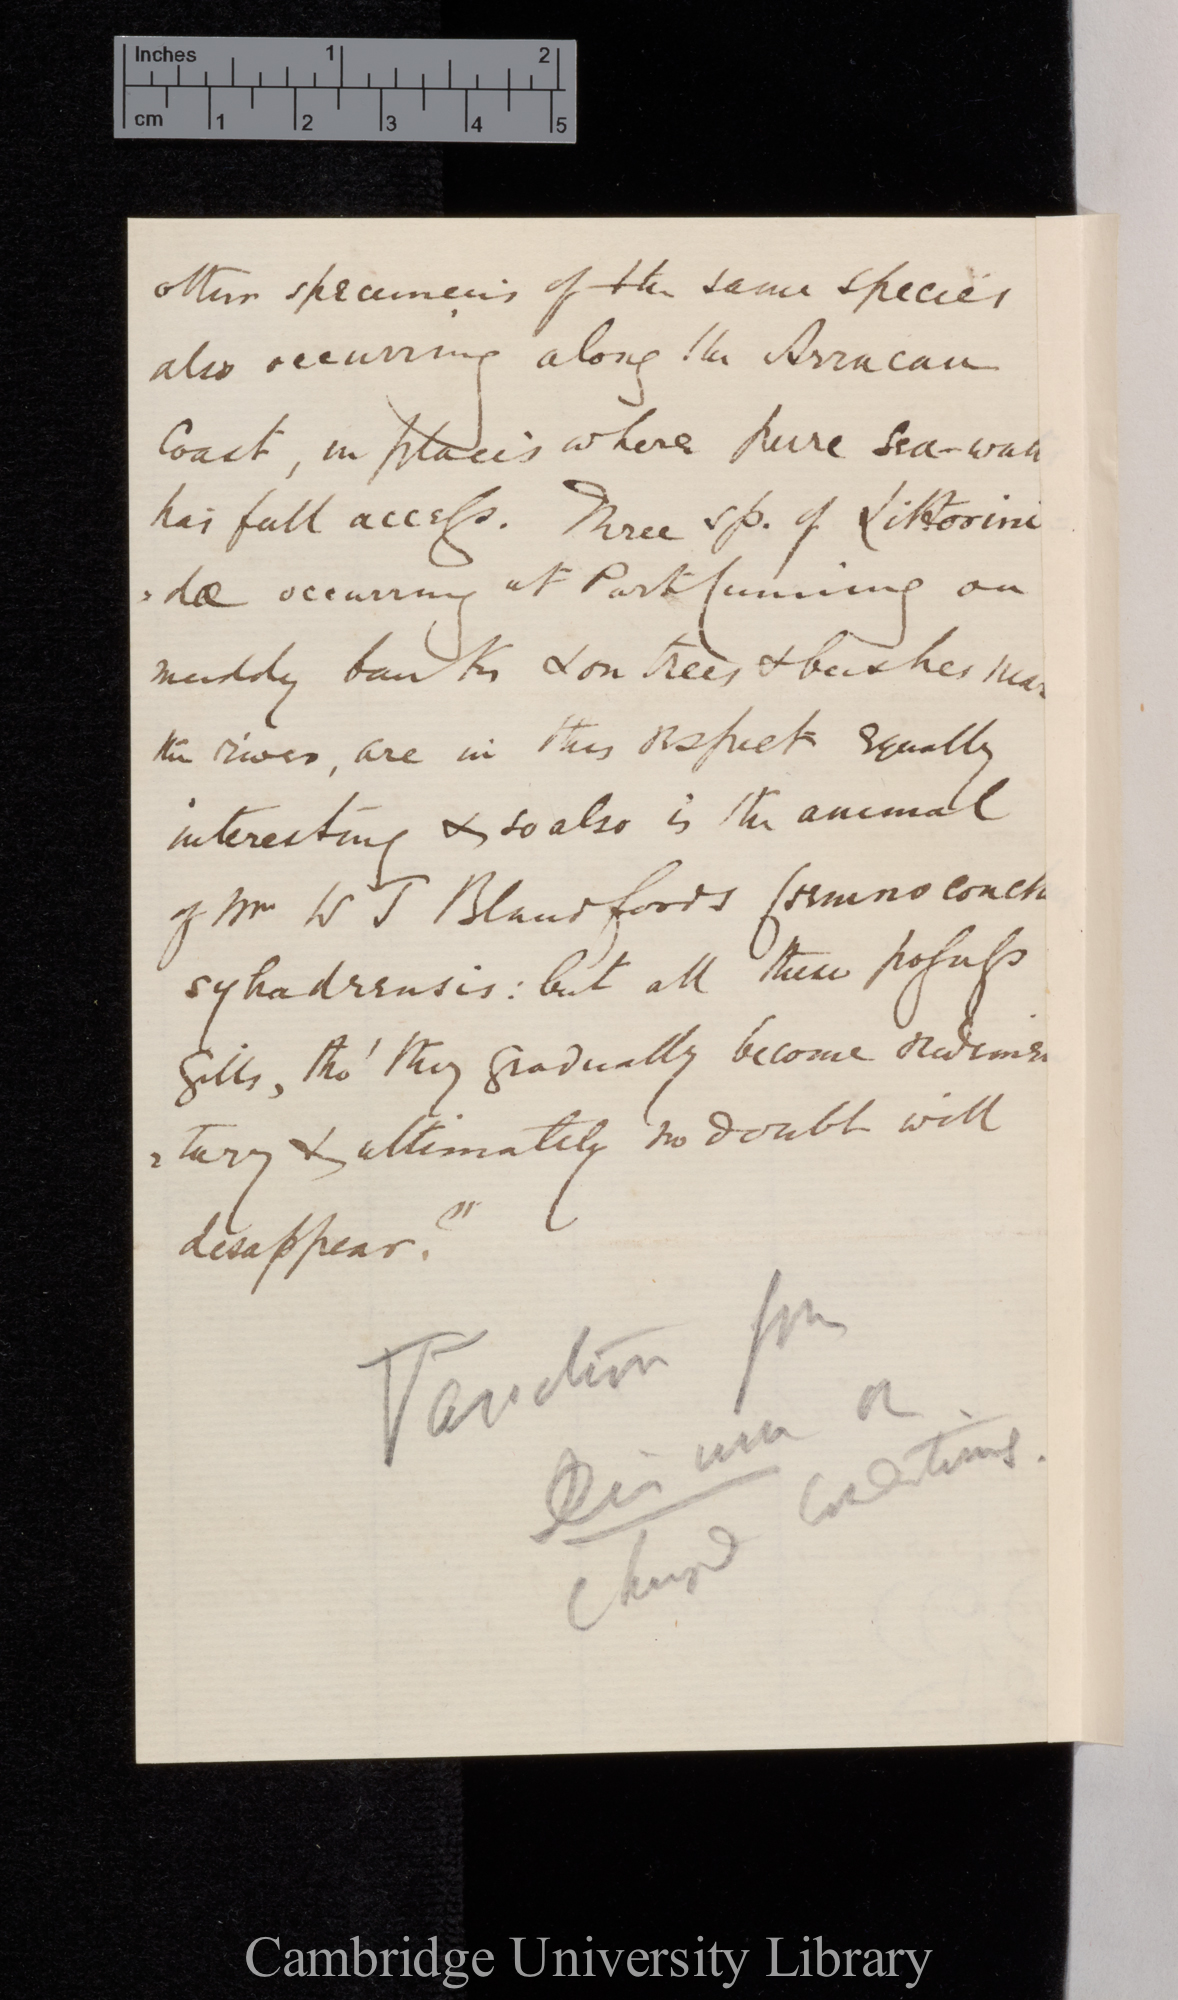 Inches 1 2
cm 1 2 3 4 5
other specimens of the same species
also occurring along the Arracan
Coast, in places where pure sea-wat
has full access. Three sp. of Littorini
-dæ occurring at Port Canning on
muddy banks & on trees & bushes near
the river, are in this respect equally
interesting & so also is the animal
of Mr W T Blandfords Cremnoconch
syhadrensis: but all these possess
gills, tho' they gradually become rudimen
-tary & ultimately no doubt will
disappear."
Variation from
Dis use or
changd conditions.
Cambridge University Library